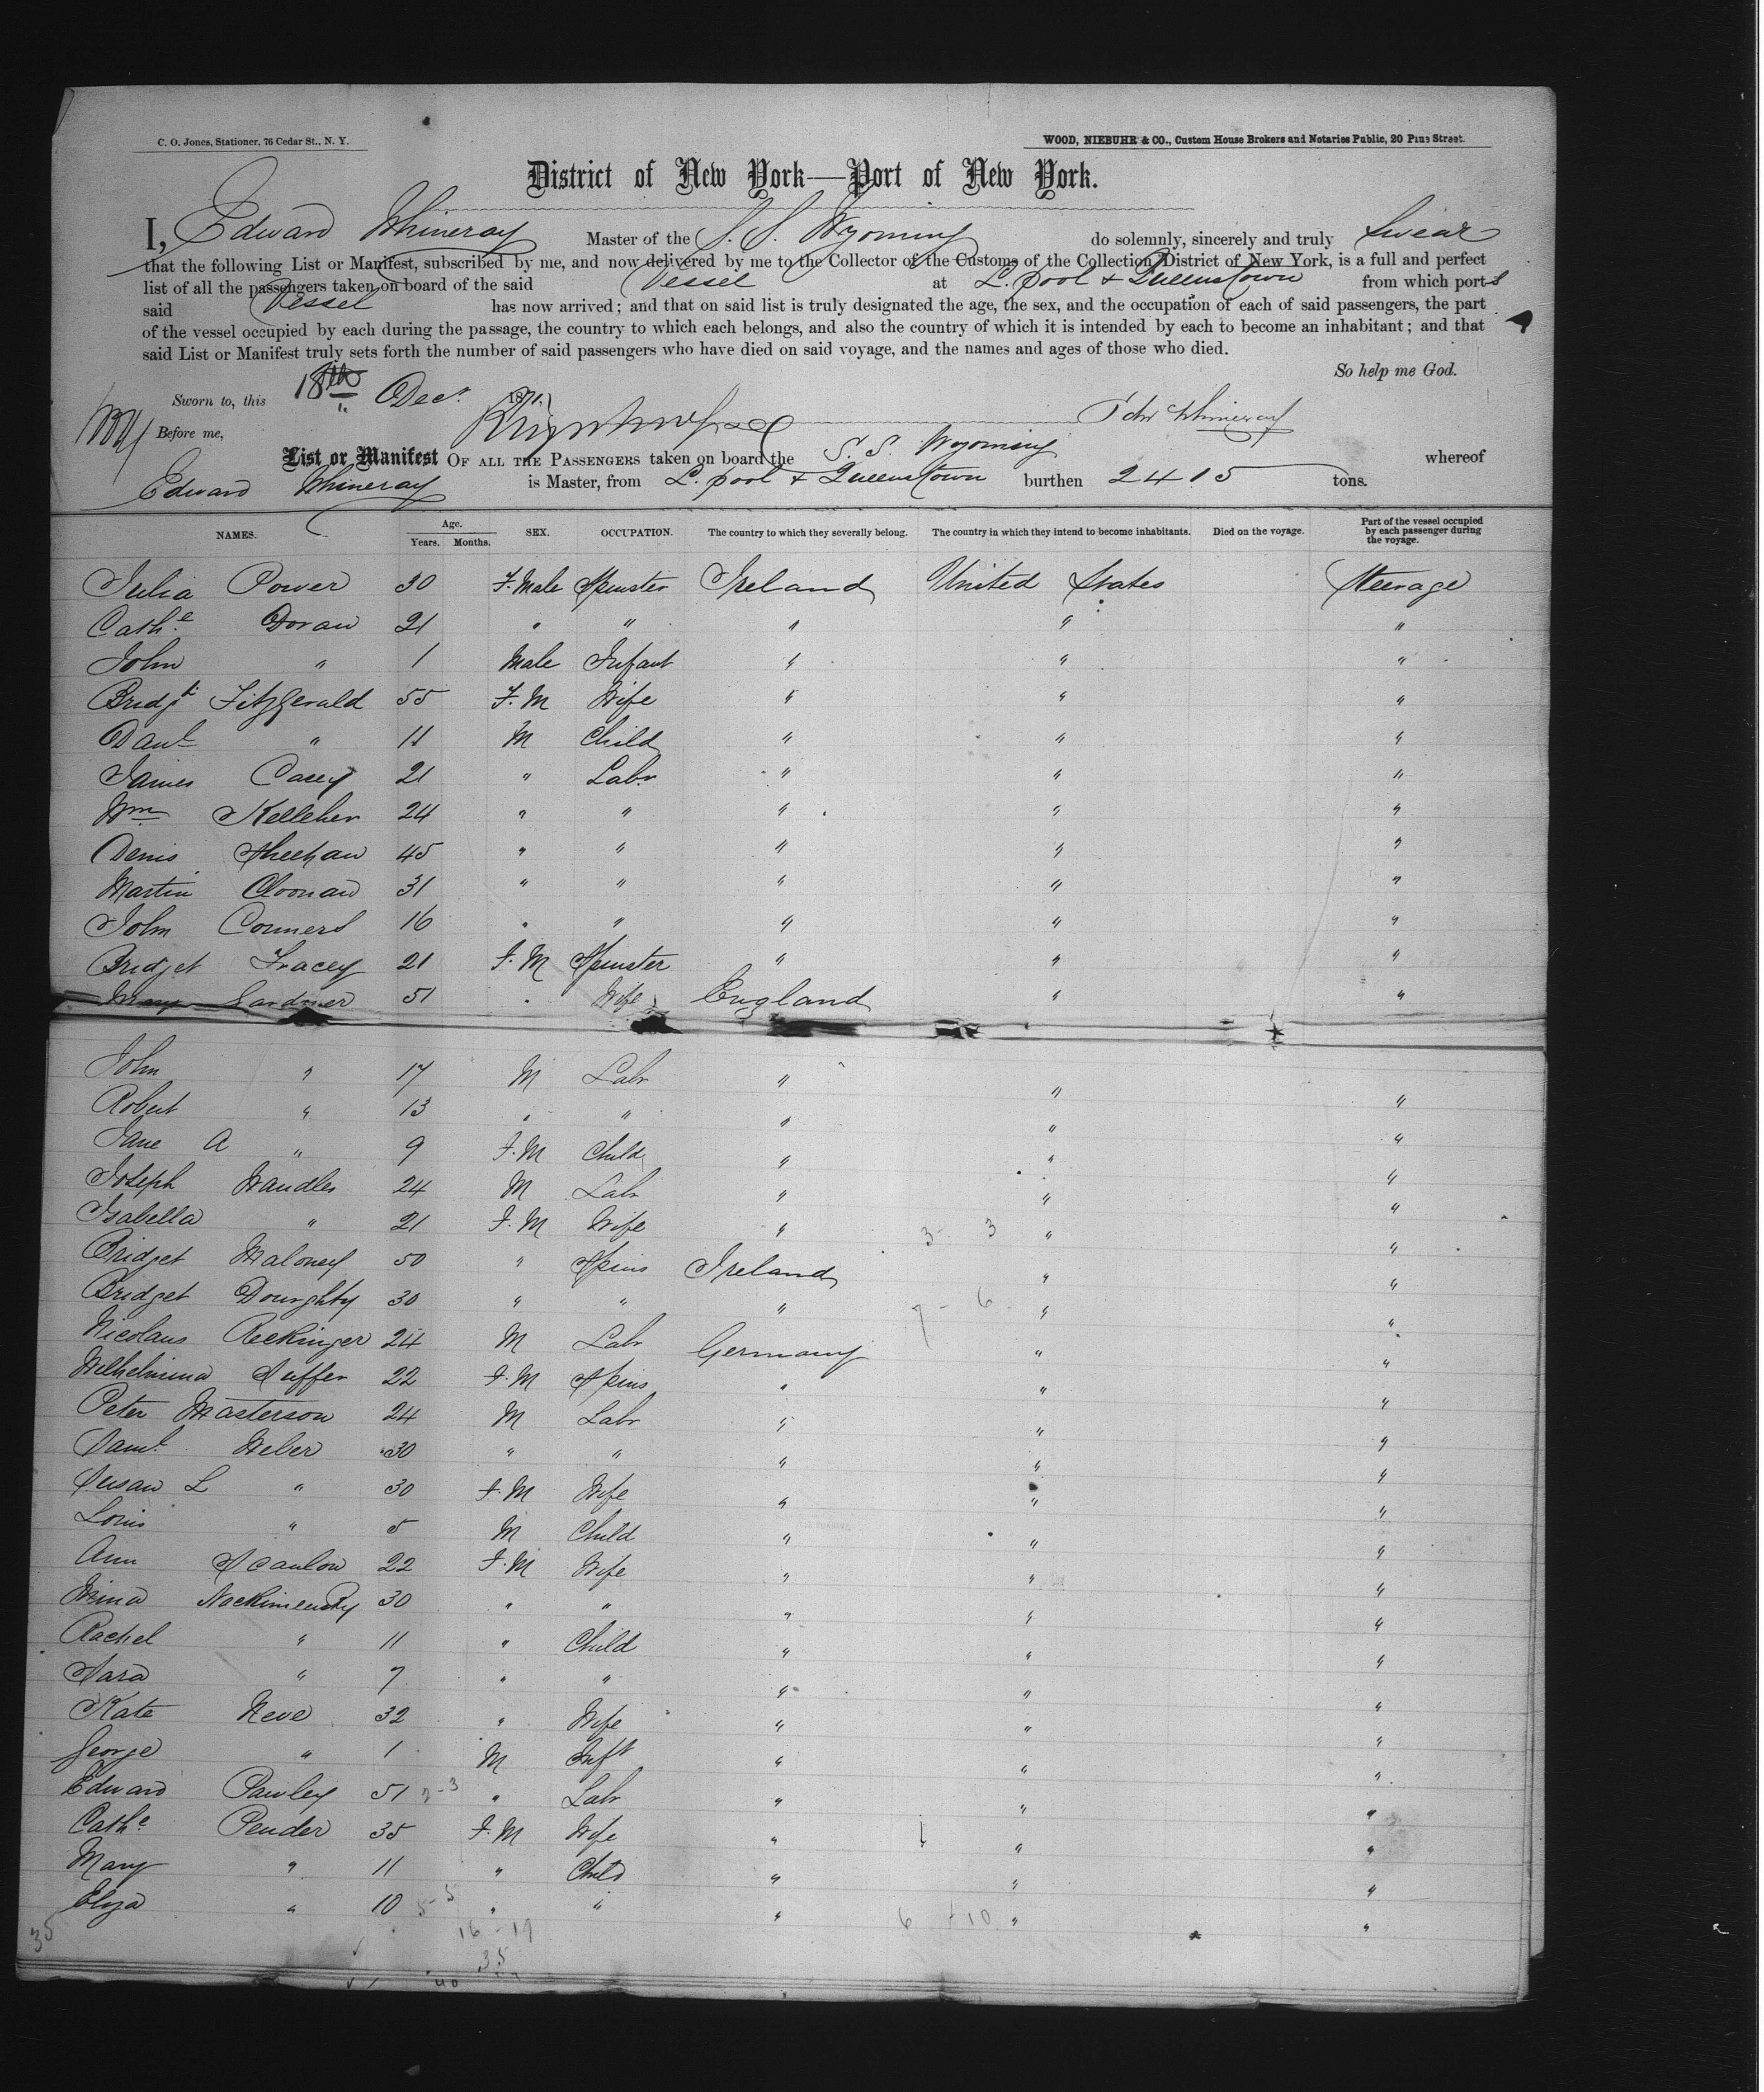 C. O. Jones, Stationer, 76 Cedar St., N. Y.
WOOD, NIEBUHR & CO., Custom House Brokers and Notaries Public, 20 Pine Street.
District of New York—Port of New York.
I, Edward Whineray Master of the S. S. Wyoming do solemnly, sincerely and truly Swear
that the following List or Manifest, subscribed by me, and now delivered by me to the Collector of the Customs of the Collection District of New York, is a full and perfect
list of all the passengers taken on board of the said Vessel at L.pool & Queenstown from which ports
said Vessel has now arrived; and that on said list is truly designated the age, the sex, and the occupation of each of said passengers, the part
of the vessel occupied by each during the passage, the country to which each belongs, and also the country of which it is intended by each to become an inhabitant; and that
said List or Manifest truly sets forth the number of said passengers who have died on said voyage, and the names and ages of those who died.
So help me God.
Sworn to, this 18th Dec. 1871.
Before me, Edw Whineray
List or Manifest OF ALL THE PASSENGERS taken on board the S. S. Wyoming whereof
Edward Whineray is Master, from L.pool & Queenstown burthen 2415 tons.
NAMES. Age. Years. Months. SEX. OCCUPATION. The country to which they severally belong. The country in which they intend to become inhabitants. Died on the voyage. Part of the vessel occupied by each passenger during the voyage.
Julia Power 30 F.Male Spinster Ireland United States Steerage
Cathe Doran 21 " " " " "
John " 1 Male Infant " " "
Bridgt Fitzgerald 55 F.M Wife " " "
Danl " 11 M Child " " "
James Casey 21 " Labr " " "
Wm Kelleher 24 " " " " "
Denis Sheehan 45 " " " " "
Martin Cloonan 31 " " " " "
John Conners 16 " " " " "
Bridget Tracey 21 F.M Spinster " " "
Mary Gardner 51 " Wife England " "
John " 17 M Labr " " "
Robert " 13 " " " " "
Jane A " 9 F.M Child " " "
Joseph Wandles 24 M Labr " " "
Isabella " 21 F.M Wife " 3 3 " "
Bridget Maloney 50 " Spins Ireland " "
Bridget Doughty 30 " " " 7 - 6 " "
Nicolaus Reckinger 24 M Labr Germany " "
Wilhelmina Suffer 22 F.M Spins " " "
Peter Masterson 24 M Labr " " "
Saml Weber 30 " " " " "
Susan L " 30 F.M Wife " " "
Louis " 5 M Child " " "
Ann Scanlon 22 F.M Wife " " "
Mina Nockimensky 30 " " " " "
Rachel " 11 " Child " " "
Sara " 7 " " " " "
Kate Neve 32 " Wife " " "
George " 1 M Inft " " "
Edward Pawley 51 " Labr " " "
Cathe Pender 35 F.M Wife " " "
Mary " 11 " Child " " "
Eliza " 10 5-5 " " " 6 +10 " "
35 16 - 19
35